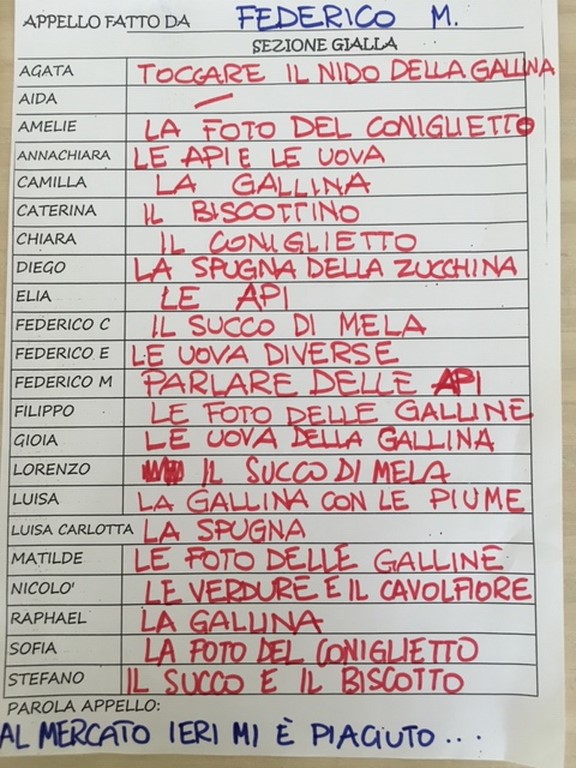 APPELLO FATTO DA FEDERICO M.
SEZIONE GIALLA
AGATA TOCCARE IL NIDO DELLA GALLINA
AIDA —
AMELIE LA FOTO DEL CONIGLIETTO
ANNACHIARA LE API E LE UOVA
CAMILLA LA GALLINA
CATERINA IL BISCOTTINO
CHIARA IL CONIGLIETTO
DIEGO LA SPUGNA DELLA ZUCCHINA
ELIA LE API
FEDERICO C IL SUCCO DI MELA
FEDERICO E LE UOVA DIVERSE
FEDERICO M PARLARE DELLE API
FILIPPO LE FOTO DELLE GALLINE
GIOIA LE UOVA DELLA GALLINA
LORENZO IL SUCCO DI MELA
LUISA LA GALLINA CON LE PIUME
LUISA CARLOTTA LA SPUGNA
MATILDE LE FOTO DELLE GALLINE
NICOLO' LE VERDURE E IL CAVOLFIORE
RAPHAEL LA GALLINA
SOFIA LA FOTO DEL CONIGLIETTO
STEFANO IL SUCCO E IL BISCOTTO
PAROLA APPELLO:
AL MERCATO IERI MI È PIACIUTO...